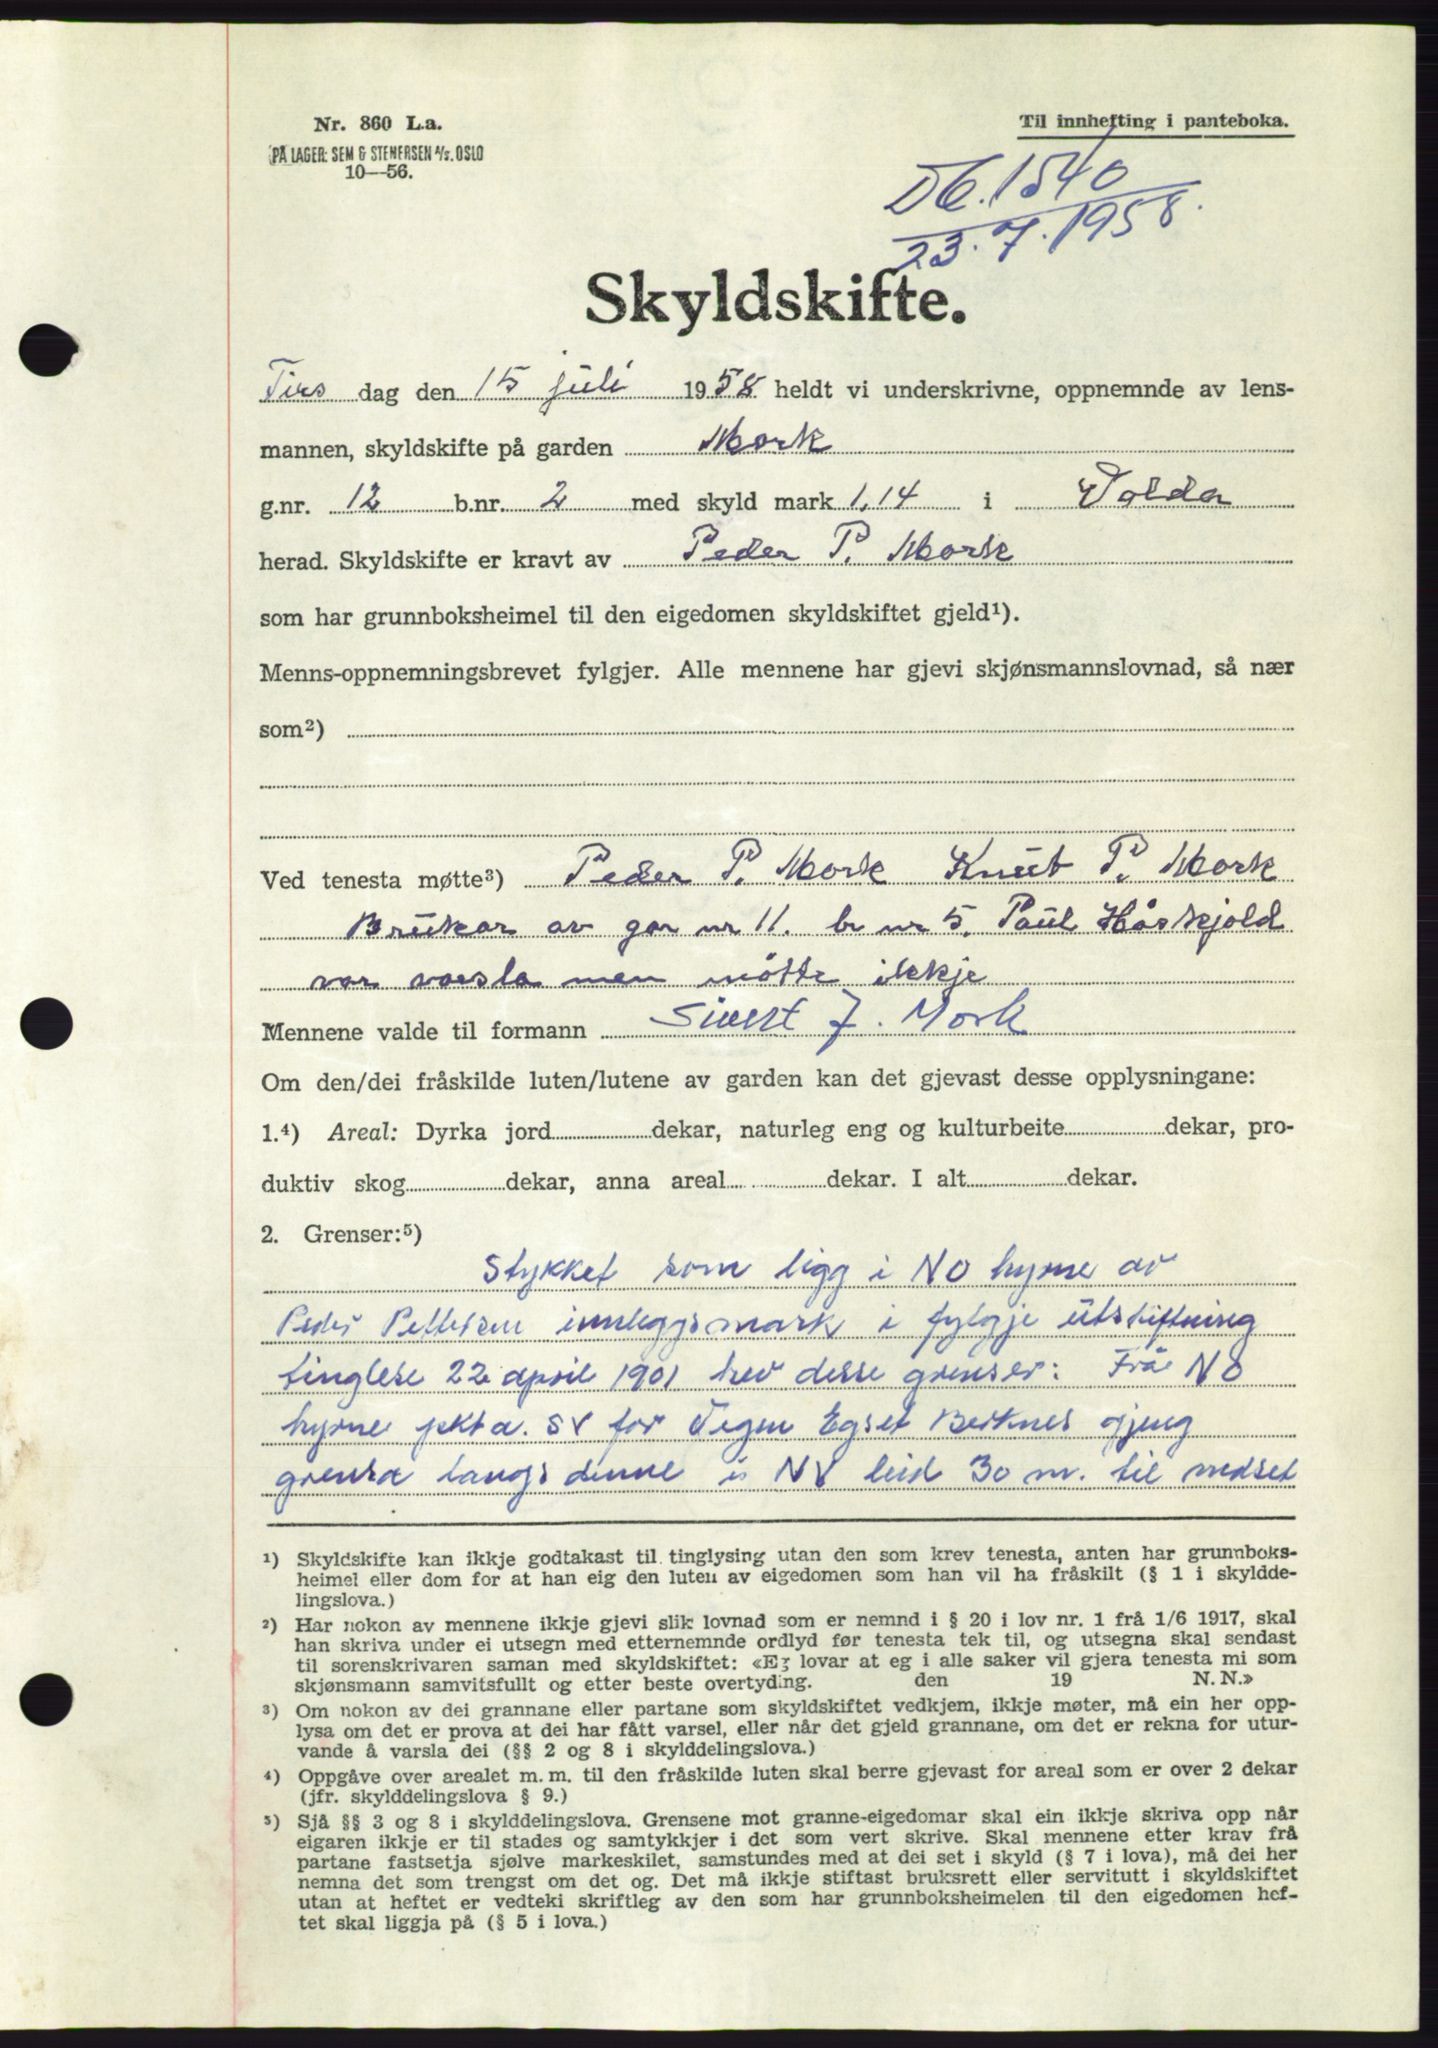 Nr. 860 L.a.
PÅ LAGER: SEM & STENERSEN A/S. OSLO
10—56.
Til innhefting i panteboka.
Db. 1540
23.7.1958.
Skyldskifte.
Tirs dag den 15 juli 1958 heldt vi underskrivne, oppnemnde av lens-
mannen, skyldskifte på garden Mork
g.nr. 12 b.nr. 2 med skyld mark 1,14 i Volda
herad. Skyldskifte er kravt av Peder P. Mork
som har grunnboksheimel til den eigedomen skyldskiftet gjeld¹).
Menns-oppnemningsbrevet fylgjer. Alle mennene har gjevi skjønsmannslovnad, så nær
som²)
Ved tenesta møtte³) Peder P. Mork Knut P. Mork
Brukar av gar nr 11. br nr 5. Paul Håskjold
var varsla men møtte ikkje
Mennene valde til formann Sivert J. Mork
Om den/dei fråskilde luten/lutene av garden kan det gjevast desse opplysningane:
1.⁴) Areal: Dyrka jord dekar, naturleg eng og kulturbeite dekar, pro-
duktiv skog dekar, anna areal dekar. I alt dekar.
2. Grenser:⁵)
Stykket som ligg i NO hyrne av
Peder Pettersen innleggsmark i fylgje utskiftning
tinglese 22 april 1901 hev desse grenser: Frå NO
hyrne SV for Vegen Egset Berknes gjeng
grensa langs denne i NV leid 30 m. til nedset
¹) Skyldskifte kan ikkje godtakast til tinglysing utan den som krev tenesta, anten har grunnboks-
heimel eller dom for at han eig den luten av eigedomen som han vil ha fråskilt (§ 1 i skyldde-
lingslova.)
²) Har nokon av mennene ikkje gjevi slik lovnad som er nemnd i § 20 i lov nr. 1 frå 1/6 1917, skal
han skriva under ei utsegn med etternemnde ordlyd før tenesta tek til, og utsegna skal sendast
til sorenskrivaren saman med skyldskiftet: «Eg lovar at eg i alle saker vil gjera tenesta mi som
skjønsmann samvitsfullt og etter beste overtyding. den 19 N. N.»
³) Om nokon av dei grannane eller partane som skyldskiftet vedkjem, ikkje møter, må ein her opp-
lysa om det er prova at dei har fått varsel, eller når det gjeld grannane, om det er rekna for utur-
vande å varsla dei (§§ 2 og 8 i skylddelingslova.)
⁴) Oppgåve over arealet m. m. til den fråskilde luten skal berre gjevast for areal som er over 2 dekar
(jfr. skylddelingslova § 9.)
⁵) Sjå §§ 3 og 8 i skylddelingslova. Grensene mot granne-eigedomar skal ein ikkje skriva opp når
eigaren ikkje er til stades og samtykkjer i det som vert skrive. Skal mennene etter krav frå
partane fastsetja sjølve markeskilet, samstundes med at dei set i skyld (§ 7 i lova), må dei her
nemna det som trengst om det og. Det må ikkje stiftast bruksrett eller servitutt i skyldskiftet
utan at heftet er vedteki skriftleg av den som har grunnboksheimelen til den eigedomen hef-
tet skal liggja på (§ 5 i lova.)